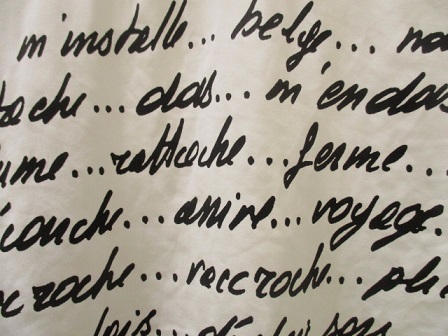 m'installe... belge... no
tache... dos... m'endor
ume... rattache... ferme...
couche... arrive... voyage.
croche... raccroche... ph
lois...